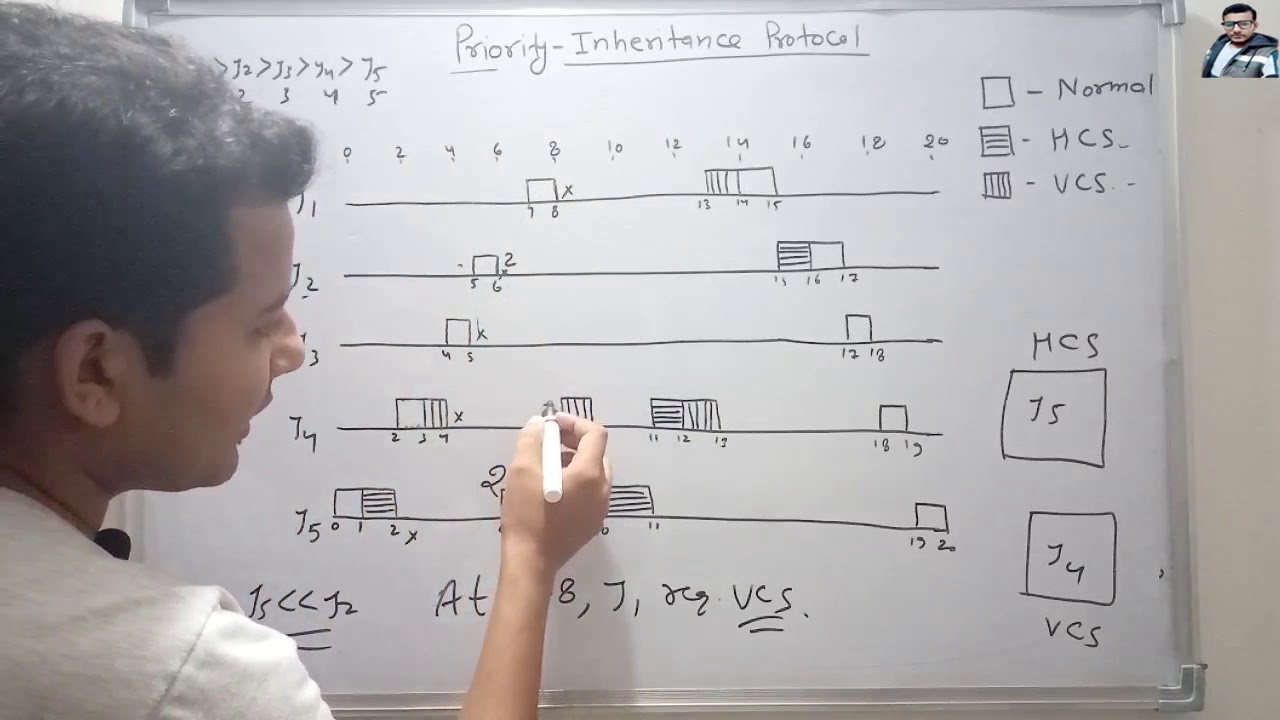 Priority-Inheritance Protocol
>J2>J3>J4>J5
2 3 4 5
- Normal
- HCS-
- VCS--
0 2 4 6 8 10 12 14 16 18 20
J1
x
7 8 13 14 15
J2
2
5 6 15 16 17
3
x
4 5 17 18
J4
x
2 3 4 11 12 13 18 19
J5
2
0 1 2 x 11 19 20
HCS
J5
J4
VCS
J5<<J2 At 8, J1 req. VCS.